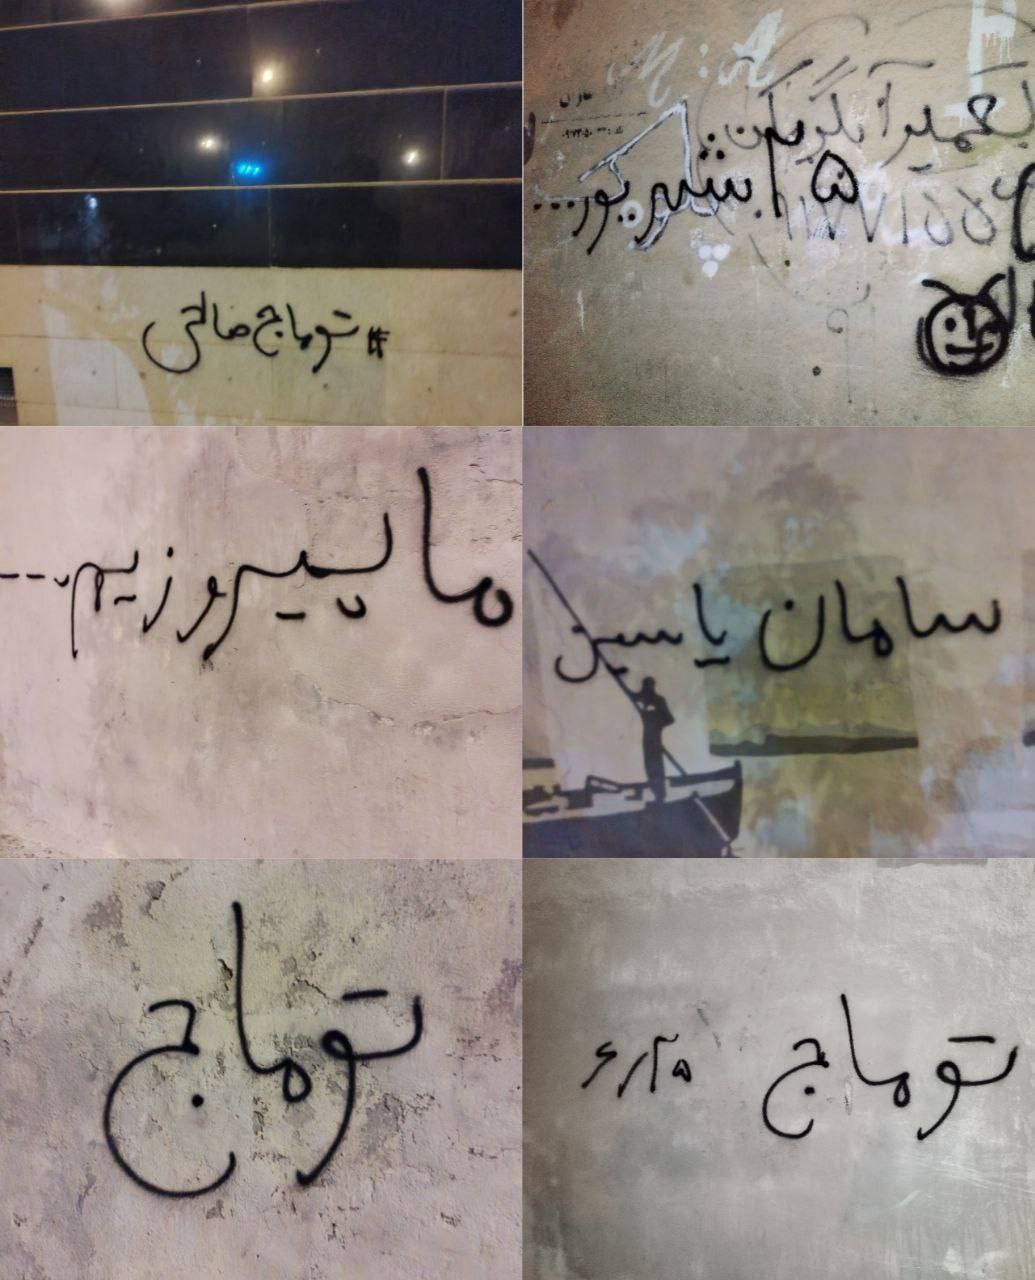 #توماج صالحی
M:A
تعمیر آبگرمکن
۲۵ شهریور...
ما پیروزیم...
سامان یاسین
توماج
توماج ۶/۲۵